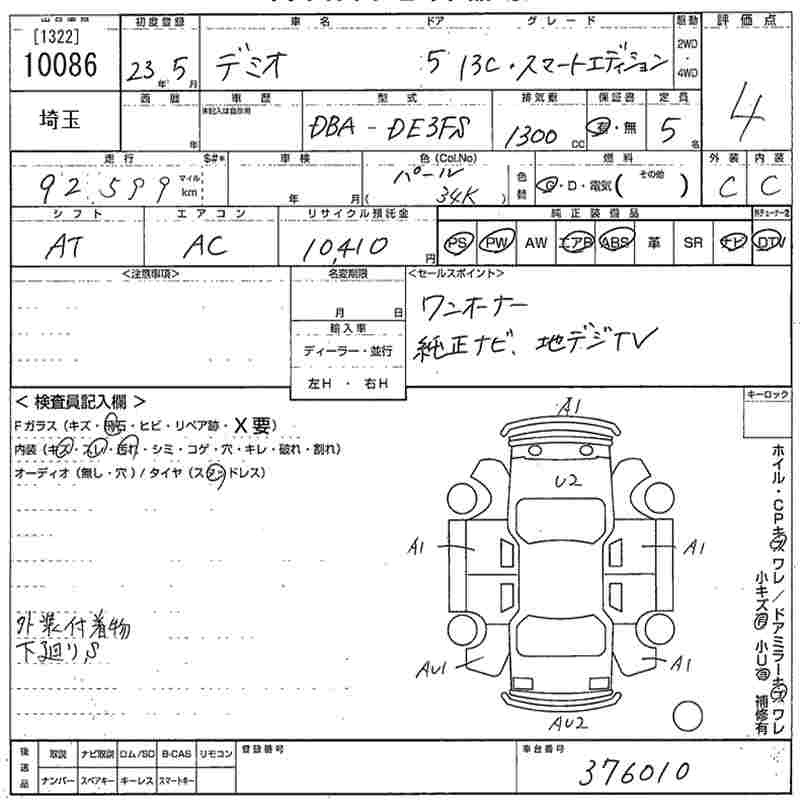 [1322]
10086
初度登録
車名
ドア
グレード
駆動
評価点
23年5月
デミオ
5
13C・スマートエディション
2WD
・
4WD
4
埼玉
西暦
年
車歴
未記入は自家用
型式
DBA-DE3FS
排気量
1300 CC
保証書
有・無
定員
5名
走行
S#*
92,599
マイル
km
車検
年 月
色(Col.No)
パール
( 34K )
色替
燃料
G・D・電気( その他 )
外装
C
内装
C
シフト
AT
エアコン
AC
リサイクル預託金
10,410円
純正装備品
PS PW AW エアB ABS 革 SR ナビ DTV
<注意事項>
名変期限
月 日
輸入車
ディーラー・並行
左H・右H
<セールスポイント>
ワンオーナー
純正ナビ、地デジTV
<検査員記入欄>
Fガラス(キズ・飛石・ヒビ・リペア跡・X要)
内装(キズ・スレ・汚れ・シミ・コゲ・穴・キレ・破れ・割れ)
オーディオ(無し・穴)/タイヤ(スタッドレス)
外装付着物
下廻りS
A1
U2
A1
A1
AU1
A1
AU2
キーロック
ホイル・CPキズ ワレ/ドアミラーキズ ワレ
小キズ有 小U有 補修有
後送品
取説 ナビ取説 ロム/SD B-CAS リモコン
ナンバー スペアキー キーレス スマートキー
登録番号
車台番号
376010